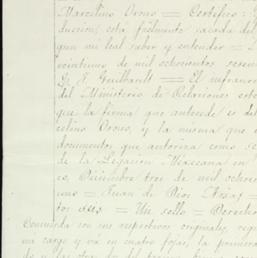 Marcelino Orono = Certifico:
duccion, está fielmente sacada del
gun mi leal saber y entender =
veintiuno de mil ochocientos
D. J. Guilhardt = El infrascri
del Ministerio de Relaciones
que la firma que antecede es de
celino Orono, y la misma que
documentos que autoriza como se
de la Legacion Mexicana en
co, Diciembre tres de mil ochoci
uno = Juan de Dios
tos = Un sello = Derecho
Concuerda con sus respectivos originales,
mi cargo y va en cuatro fojas, la primera